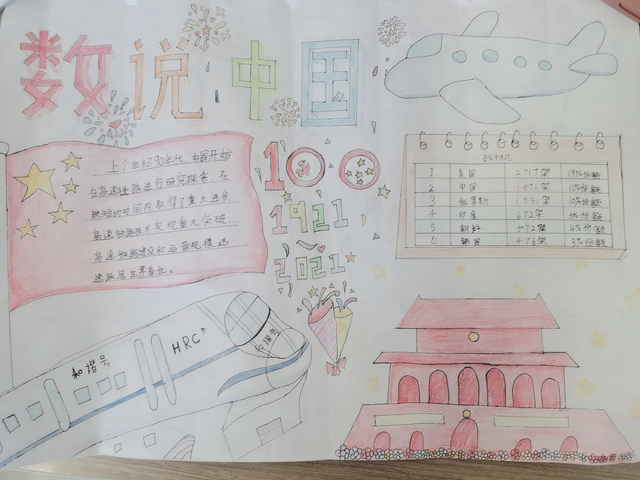 数说中国
上个世纪90年代,中国开始
在高速铁路进行研究探索,在
较短的时间内取得了重大进步,
高速铁路技术实现重大突破,
高速铁路建设和运营规模迅
速跃居世界首位。
100
1921
~
2021
1 美国 2717架 19%份额
2 中国 1571架 10%份额
3 俄罗斯 1531架 10%份额
4 印度 672架 4%份额
5 朝鲜 572架 4%份额
6 韩国 476架 3%份额
和谐号
HRC
和谐号